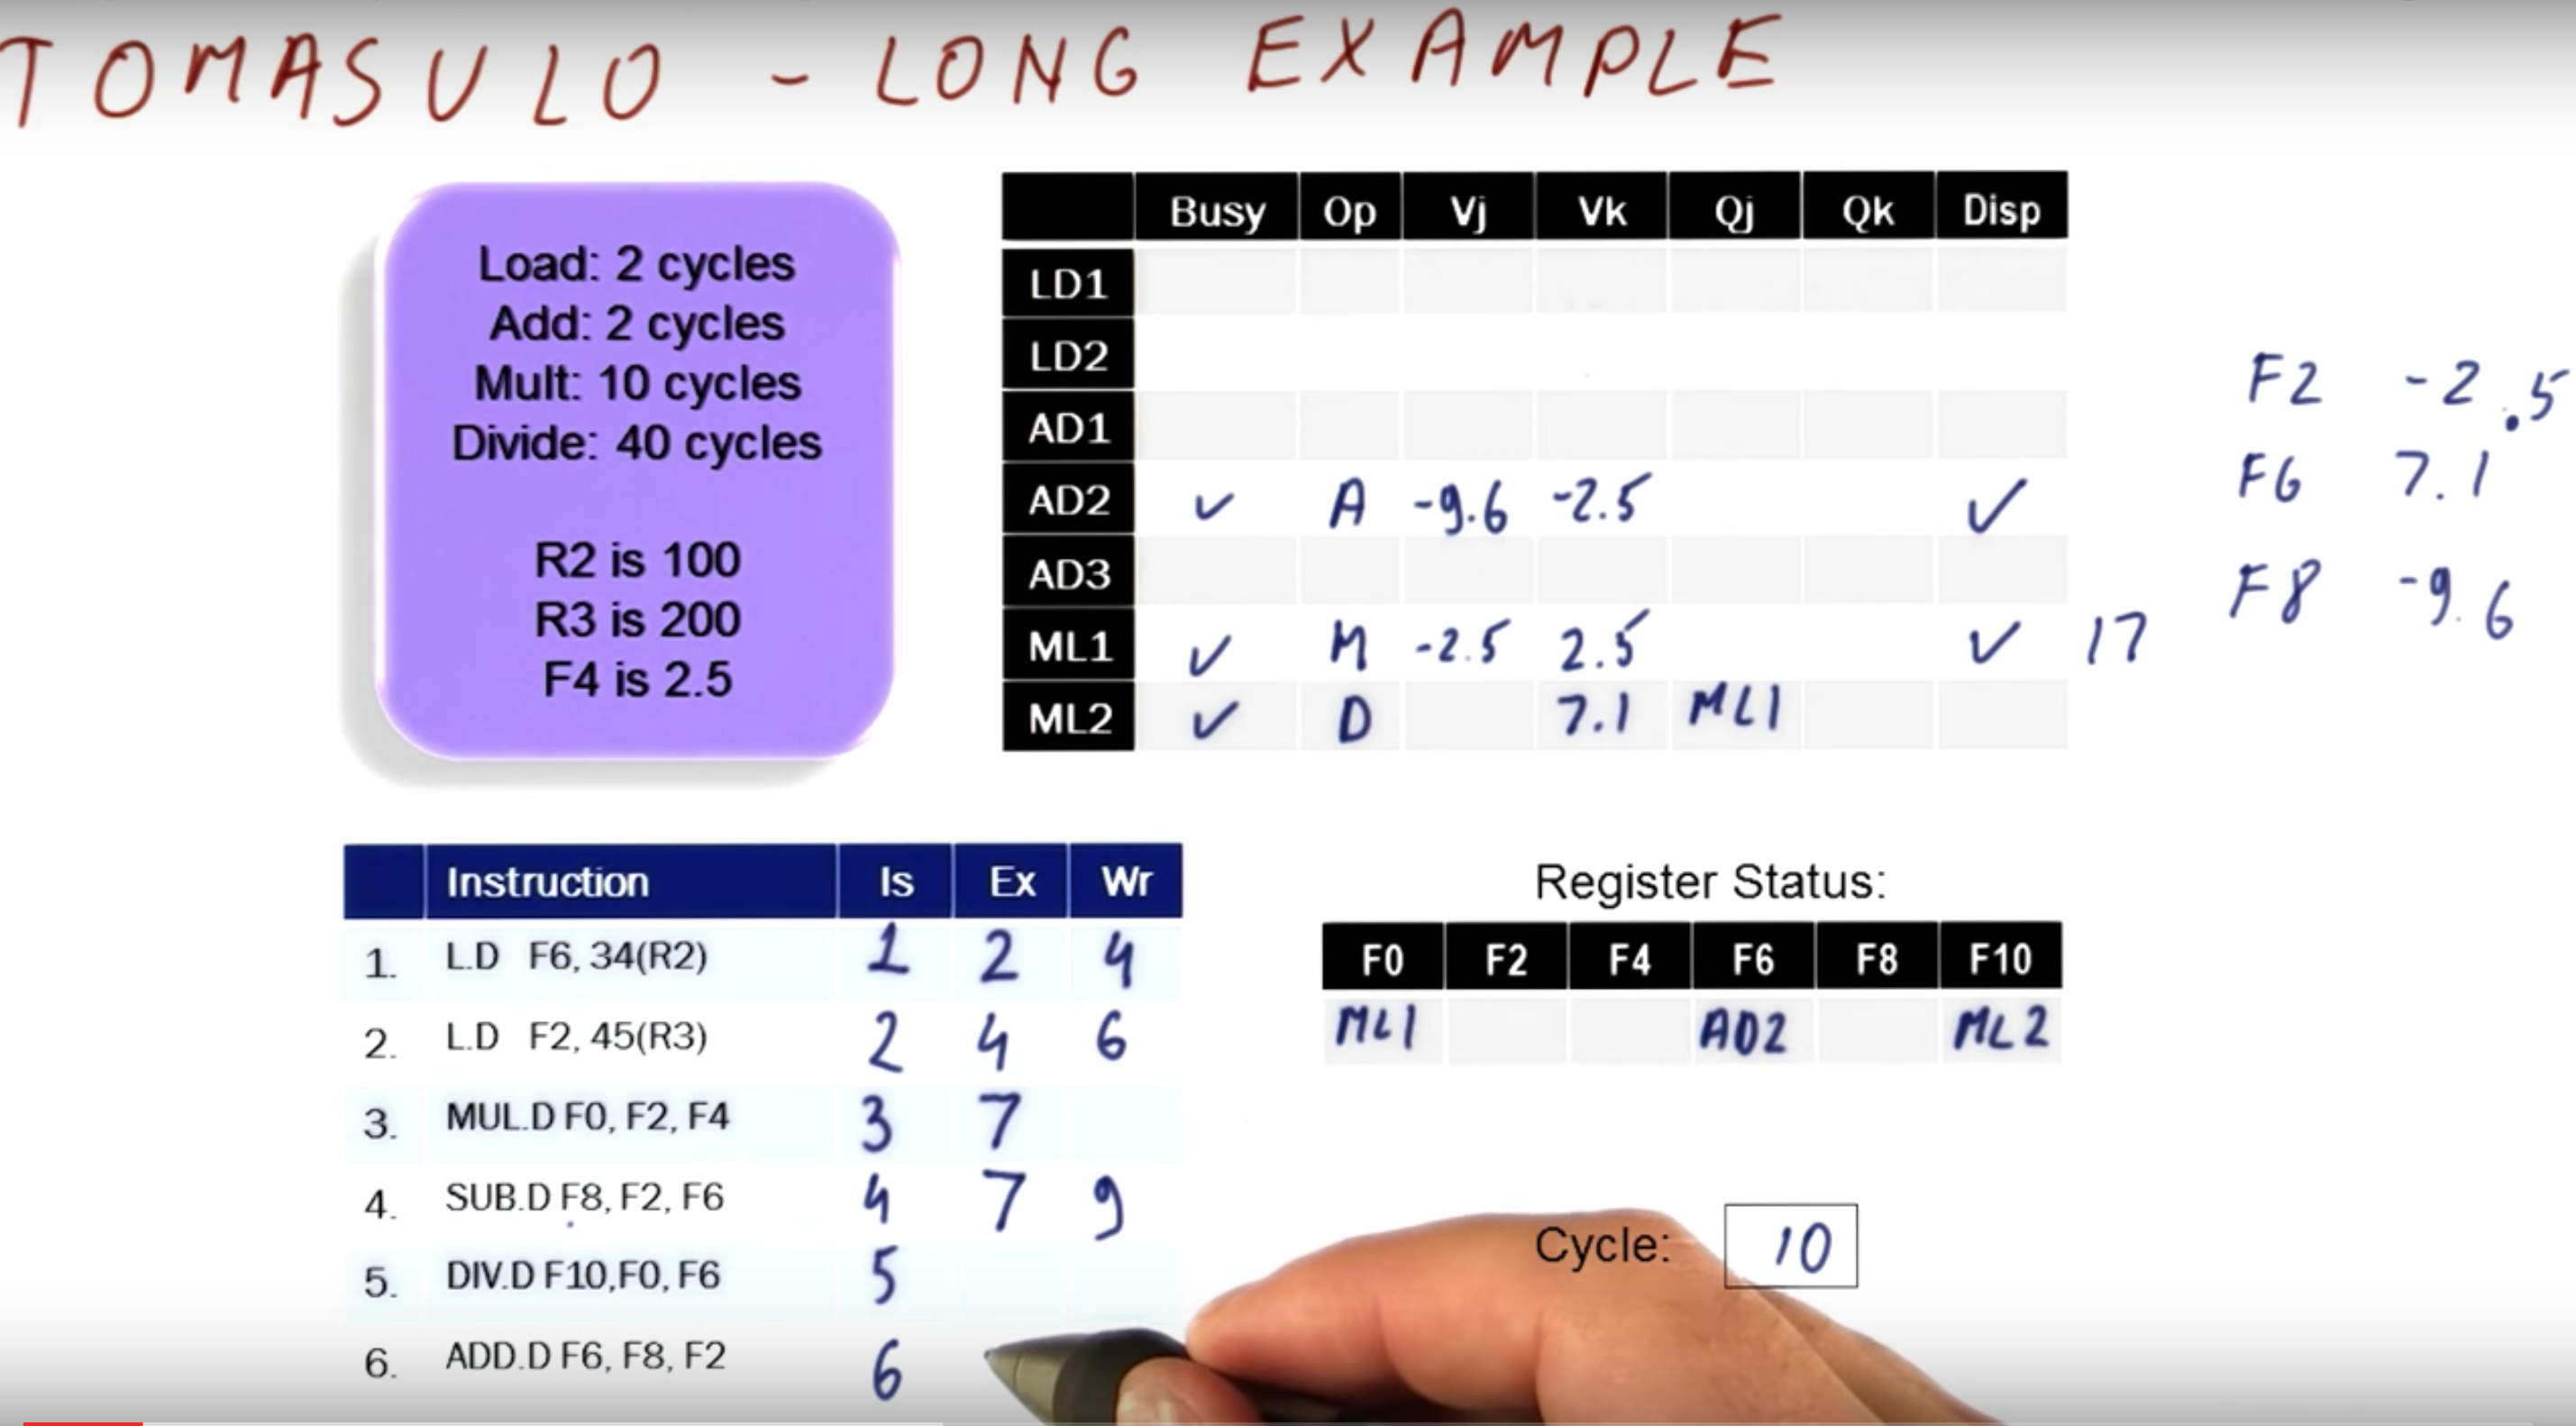 TOMASULO - LONG EXAMPLE
Load: 2 cycles
Add: 2 cycles
Mult: 10 cycles
Divide: 40 cycles
R2 is 100
R3 is 200
F4 is 2.5
Busy Op Vj Vk Qj Qk Disp
LD1
LD2
AD1
AD2 ✓ A -9.6 -2.5 ✓
AD3
ML1 ✓ M -2.5 2.5 ✓ 17
ML2 ✓ D 7.1 ML1
F2 -2.5
F6 7.1
F8 -9.6
Instruction Is Ex Wr
1. L.D F6, 34(R2) 1 2 4
2. L.D F2, 45(R3) 2 4 6
3. MUL.D F0, F2, F4 3 7
4. SUB.D F8, F2, F6 4 7 9
5. DIV.D F10,F0, F6 5
6. ADD.D F6, F8, F2 6
Register Status:
F0 F2 F4 F6 F8 F10
ML1 AD2 ML2
Cycle: 10